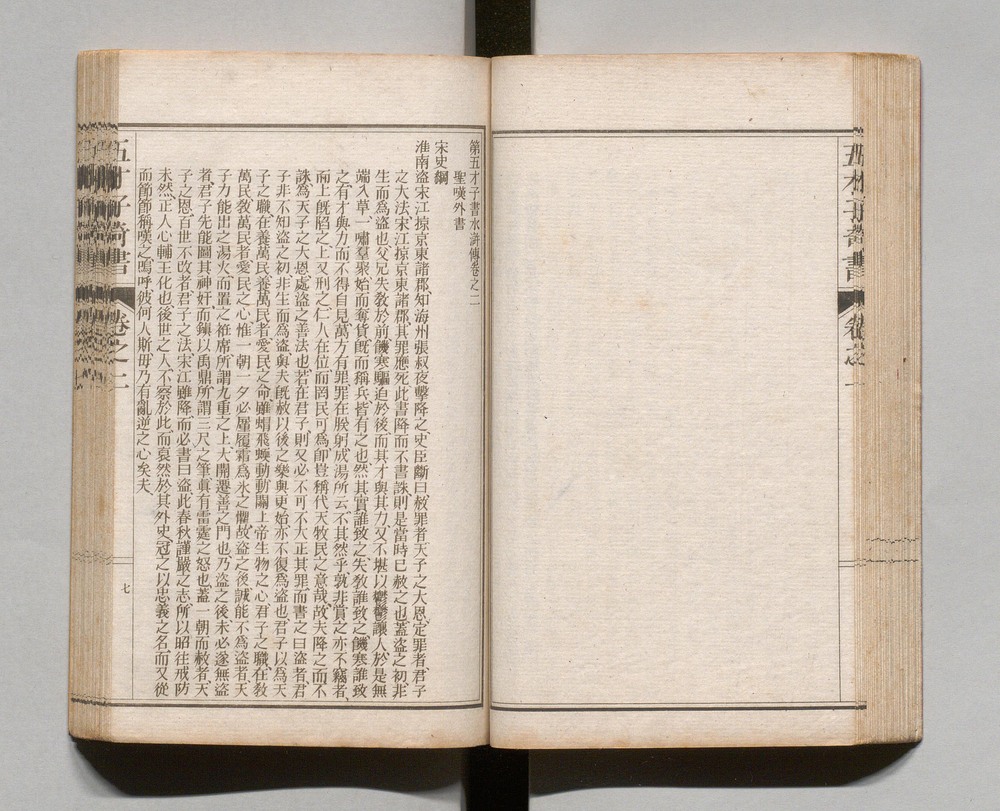 五才子奇書
卷之一
第五才子書水滸傳卷之二
聖嘆外書
宋史綱
淮南盜宋江掠京東諸郡知海州張叔夜擊降之史臣斷曰赦罪者天子之大恩定罪者君子
之大法宋江掠京東諸郡其罪應死此書降而不書誅則是當時已赦之也蓋盜之初非
生而為盜也父兄失教於前饑寒驅迫於後而其才與其力又不堪以鬱鬱讓人於是無
端入草一嘯羣聚始而奪貨既而稱兵皆有之也然其實誰致之失教誰致之饑寒誰致
之有才與力而不得自見萬方有罪罪在朕躬成湯所云不其然乎孰非賞之亦不竊者
而上既陷之上又刑之仁人在位而罔民可為卽豈稱代天牧民之意哉故夫降之而不
誅為天子之大恩處盜之善法也若在君子則又必不可不大正其罪而書之曰盜者君
子非不知盜之初非生而為盜與夫既赦以後之樂與更始亦不復為盜也君子以為天
子之職在養萬民養萬民者愛民之命雖蜎飛蠕動動關上帝生物之心君子之職在教
萬民教萬民者愛民之心惟一朝一夕必屬履霜為氷之懼故盜之後誠能不為盜者天
子力能出之湯火而置之袵席所謂九重之上大開遷善之門也乃盜之後未必遂無盜
者君子先能圖其神奸而鎭以禹鼎所謂三尺之筆眞有雷霆之怒也蓋一朝而赦者天
子之恩百世不改者君子之法宋江雖降而必書曰盜此春秋謹嚴之志所以昭往戒防
未然正人心輔王化也後世之人不察於此而裒然於其外史冠之以忠義之名而又從
而節節稱嘆之嗚呼彼何人斯毋乃有亂逆之心矣夫
五才子奇書
卷之二
七